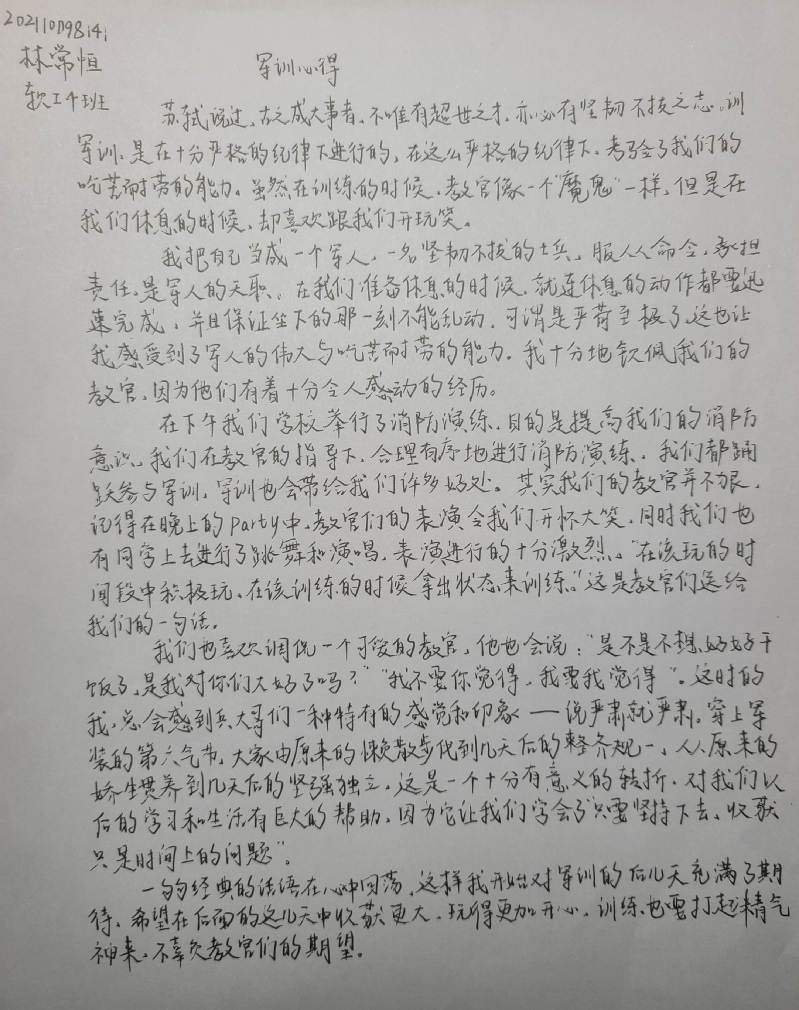 20211079814
林常恒
软工4班
军训心得
苏轼说过、古之成大事者、不唯有超世之才，亦必有坚韧不拔之志。训
军训、是在十分严格的纪律下进行的，在这么严格的纪律下、考验了我们的
吃苦耐劳的能力。虽然在训练的时候，教官像一个“魔鬼”一样，但是在
我们休息的时候，却喜欢跟我们开玩笑。
我把自己当成一个军人，一名坚韧不拔的士兵，服从命令，承担
责任，是军人的天职、在我们准备休息的时候，就连休息的动作都要迅
速完成，并且保证坐下的那一刻不能乱动，可谓是严苛至极了，这也让
我感受到了军人的伟大与吃苦耐劳的能力。我十分地钦佩我们的
教官，因为他们有着十分令人感动的经历。
在下午我们学校举行了消防演练、目的是提高我们的消防
意识、我们在教官的指导下、合理有序地进行消防演练、我们都踊
跃参与军训，军训也会带给我们许多好处。其实我们的教官并不狠，
记得在晚上的party中，教官们的表演令我们开怀大笑，同时我们也
有同学上去进行了跳舞和演唱，表演进行的十分激烈、“在该玩的时
间段中积极玩、在该训练的时候拿出状态来训练。”这是教官们送给
我们的一句话。
我们也喜欢调侃一个可爱的教官，他也会说：“是不是不想好好干
饭了，是我对你们太好了吗？”“我不要你觉得，我要我觉得”。这时的
我，总会感到兵大哥们一种特有的感觉和印象——说严肃就严肃。穿上军
装的第六气节，大家由原来的懒散步伐到几天后的整齐规一、从原来的
娇生惯养到几天后的坚强独立，这是一个十分有意义的转折，对我们以
后的学习和生活有巨大的帮助，因为它让我们学会了“只要坚持下去、收获
只是时间上的问题”。
一句句经典的话语在心中回荡，这样我开始对军训的后几天充满了期
待、希望在后面的这几天中收获更大，玩得更加开心，训练也要打起精气
神来，不辜负教官们的期望。